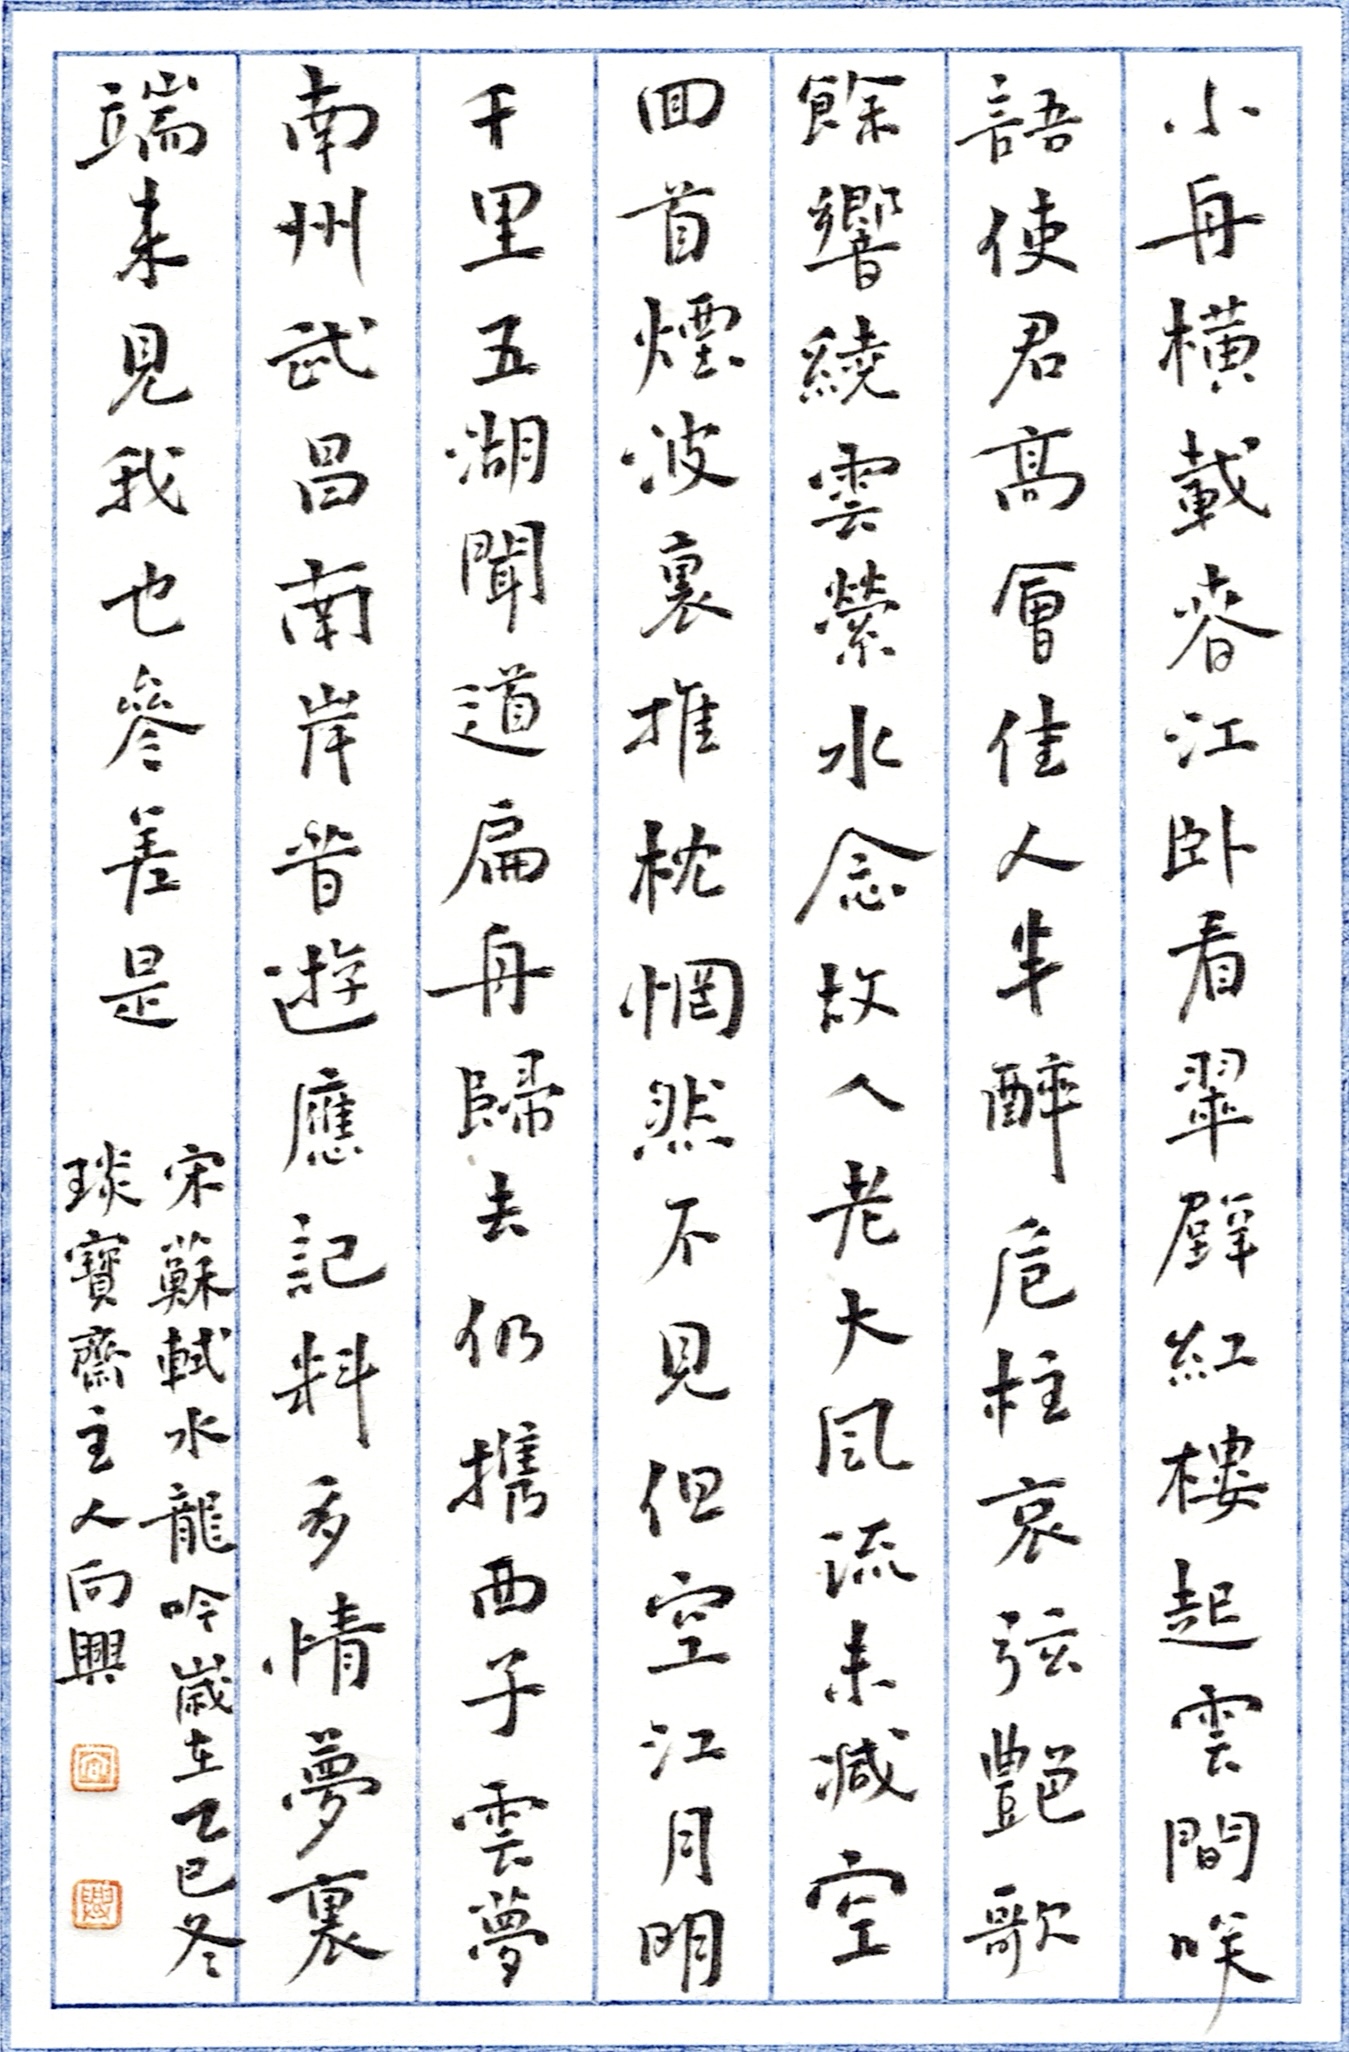 小舟橫載春江卧看翠壁紅樓起雲間咲
語使君高會佳人半醉危柱哀弦艷歌
餘響繞雲縈水念故人老大風流未減空
回首煙波裏推枕惘然不見但空江月明
千里五湖聞道扁舟歸去仍携西子雲夢
南州武昌南岸昔遊應記料多情夢裏
端来見我也參差是
宋蘇軾水龍吟歲在乙巳冬
琰寶齋主人向興
向
興